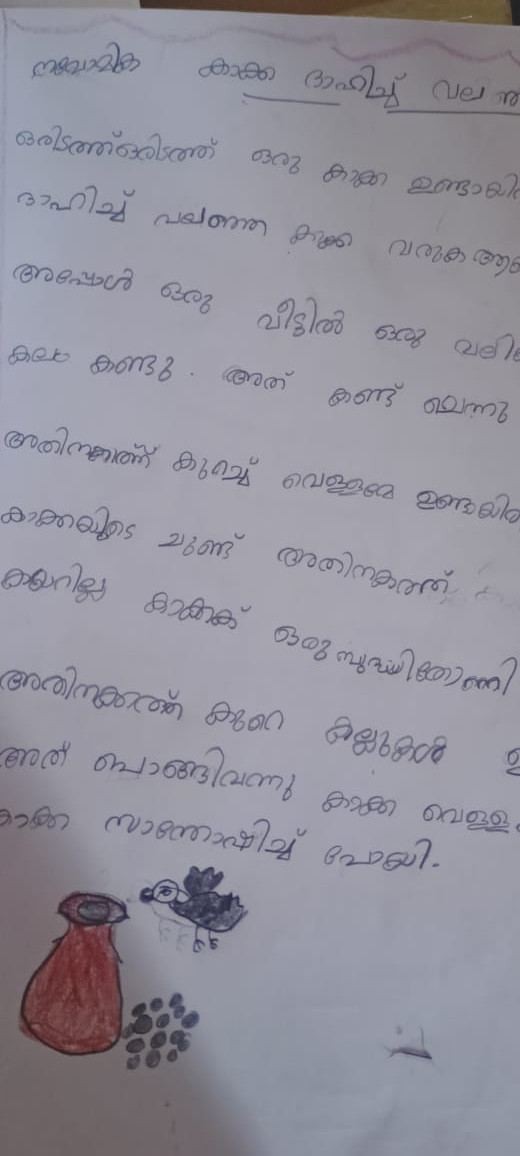 നവോമിക കാക്ക ദാഹിച്ച് വല
ഒരിടത്ത്ഒരിടത്ത് ഒരു കാക്ക ഉണ്ടായി
ദാഹിച്ച് വലഞ്ഞ കാക്ക വരുക
അപ്പോൾ ഒരു വീട്ടിൽ ഒരു വലി
കലം കണ്ടു. അത് കണ്ട് ചെന്നു
അതിനകത്ത് കുറച്ച് വെള്ളമേ ഉണ്ടായി
കാക്കയുടെ ചുണ്ട് അതിനകത്ത്
കയറില്ല കാക്കക് ഒരു ബുദ്ധിതോന്നി
അതിനകത്ത് കുറെ കല്ലുകൾ
അത് പൊങ്ങിവന്നു കാക്ക വെള്ള
കാക്ക സാന്തോഷിച്ച് പോയി.